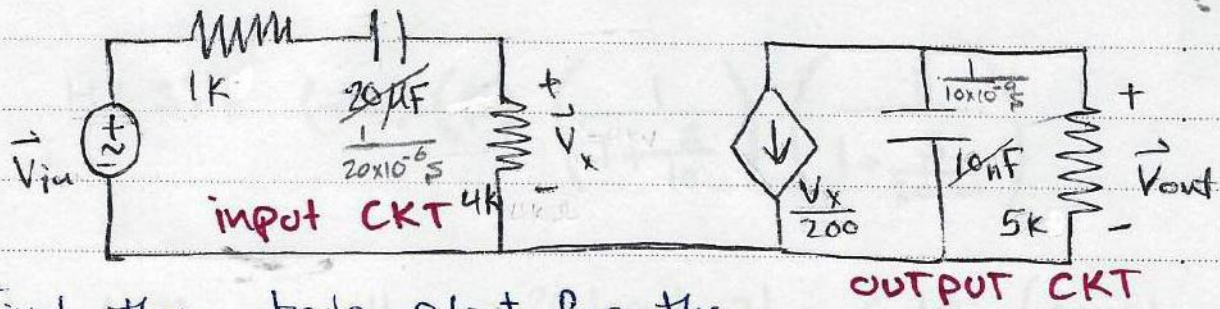 1K
20μF
1/(20x10⁻⁶s)
+
V⃗x
-
4K
V⃗in
+
~
input CKT
Vx/200
1/(10x10⁻⁹s)
10nF
5K
+
V⃗out
-
OUTPUT CKT